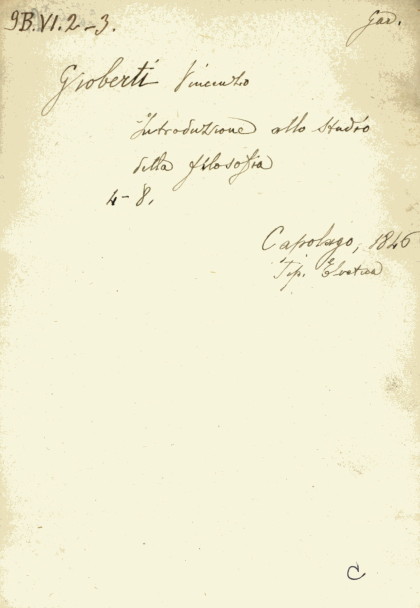 9B.VI.2-3.
Gioberti Vincenzo
Introduzione allo studio
della filosofia
4-8.
Capolago, 1846
Tip. Elvetica
C